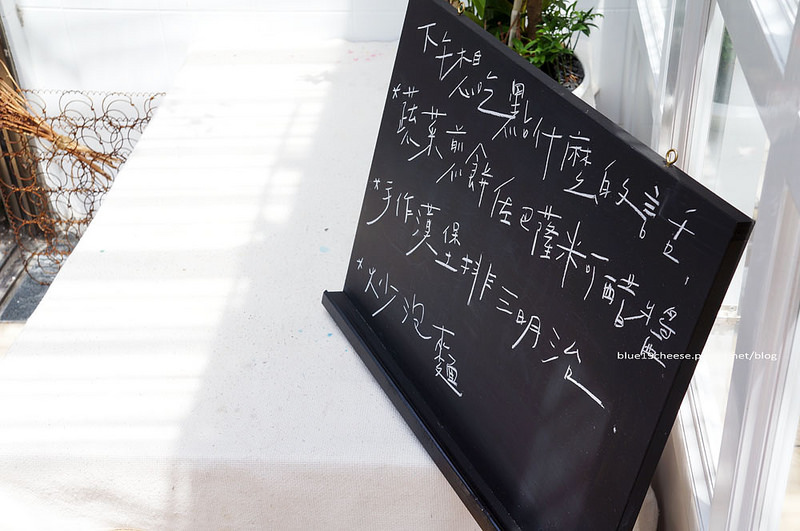 下午想吃點什麼的話,
*蔬菜煎餅佐巴薩米可醋醬
*手作漢堡排三明治
*炒泡麵